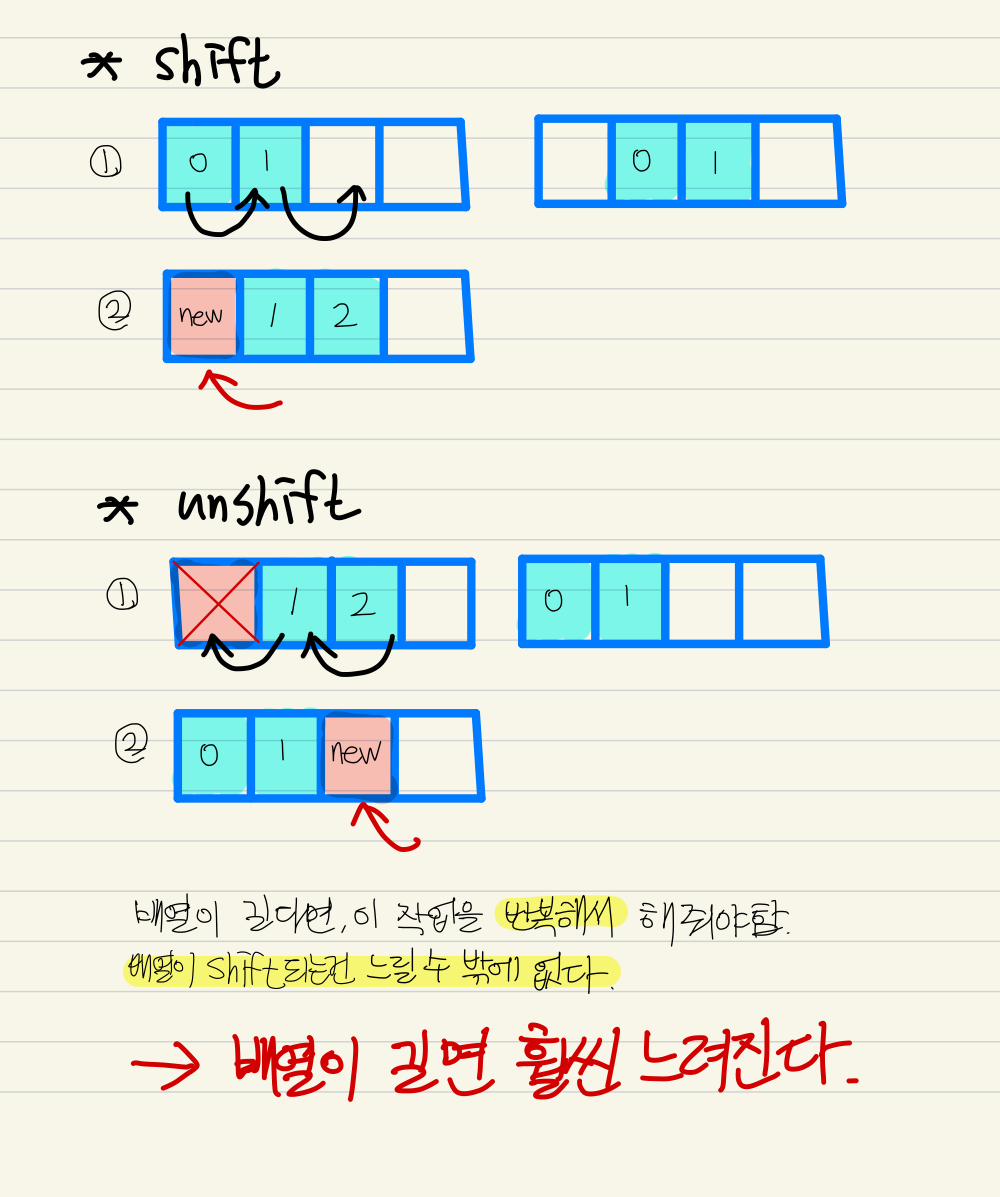 * shift
① 0 1 0 1
② new 1 2
* unshift
① 1 2 0 1
② 0 1 new
배열이 길다면, 이 작업을 반복해서 해줘야함.
배열이 shift되는건 느릴 수 밖에 없다.
→ 배열이 길면 훨씬 느려진다.